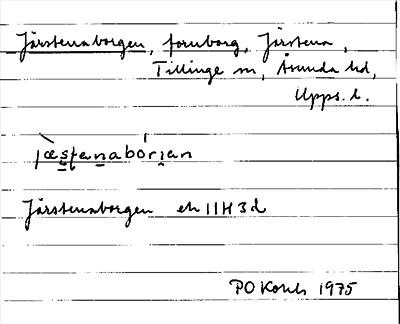 Järstenaborgen, fornborg, Järstena,
Tillinge sn, Åsunda hd,
Upps. l.
jæstenabórian
Järstenaborgen ek 11H3d
1975